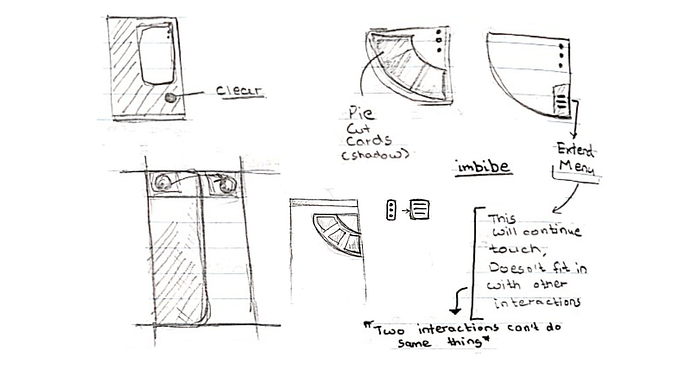 Clear
Pie
Cut
Cards
(shadow)
imbibe
Extend
Menu
This
will continue
touch,
Doesn't fit in
with other
interactions
"Two interactions can't do
same thing"